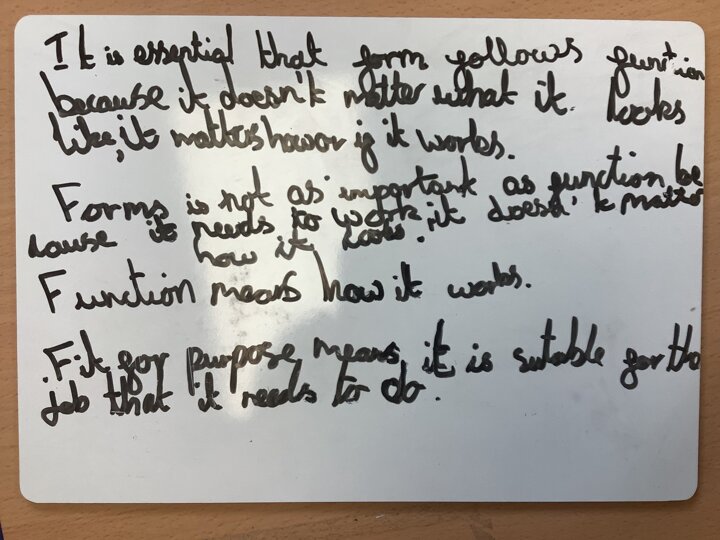 It is essential that form follows function
because it doesn't matter what it. looks
like, it matters how or if it works.
Forms is not as important as function be
cause it needs to work. it doesn't matter
how it looks.
Function means how it works.
Fit for purpose means it is sutable for the
job that it needs to do.